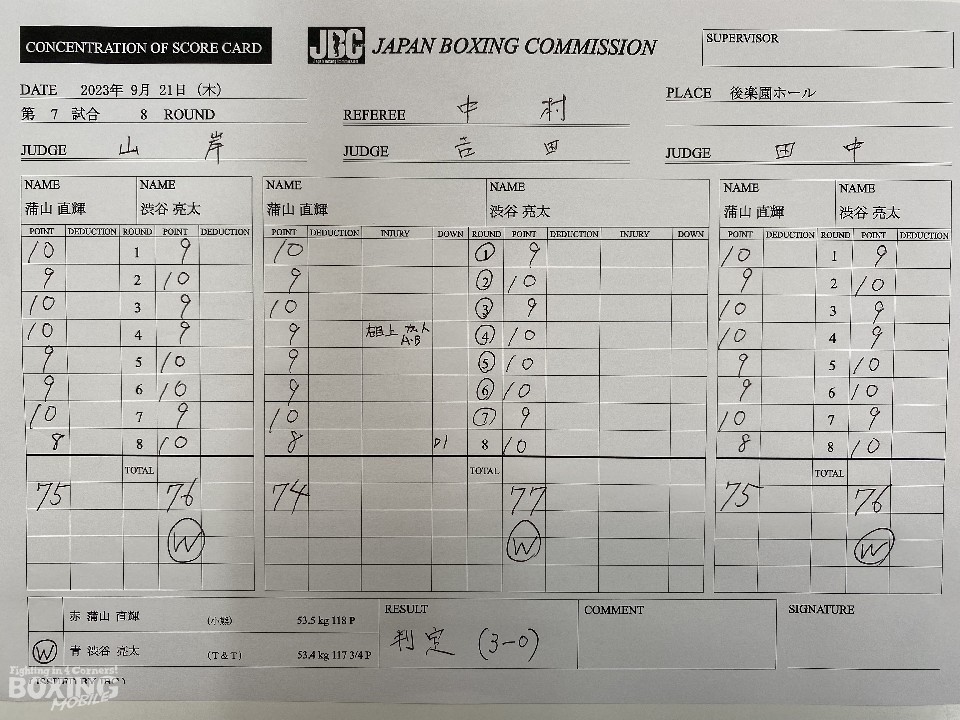 CONCENTRATION OF SCORE CARD
JBC JAPAN BOXING COMMISSION
SUPERVISOR
DATE 2023年 9月 21日 (木)
PLACE 後楽園ホール
第 7 試合 8 ROUND
REFEREE 中村
JUDGE 山岸
JUDGE 吉田
JUDGE 田中
NAME NAME NAME NAME NAME NAME
蒲山 直輝 渋谷 亮太 蒲山 直輝 渋谷 亮太 蒲山 直輝 渋谷 亮太
POINT DEDUCTION ROUND POINT DEDUCTION POINT DEDUCTION INJURY DOWN ROUND POINT DEDUCTION INJURY DOWN POINT DEDUCTION ROUND POINT DEDUCTION
10 1 9 10 1 9 10 1 9
9 2 10 9 2 10 9 2 10
10 3 9 10 3 9 10 3 9
10 4 9 9 A・B 4 10 10 4 9
9 5 10 9 5 10 9 5 10
9 6 10 9 6 10 9 6 10
10 7 9 10 7 9 10 7 9
8 8 10 8 D1 8 10 8 8 10
TOTAL TOTAL TOTAL
75 76 74 77 75 76
W W W
赤 蒲山 直輝 (小熊) 53.5 kg 118 P
W 青 渋谷 亮太 (T & T) 53.4 kg 117 3/4 P
RESULT
判定 (3-0)
COMMENT
SIGNATURE
Fighting in 4 Corners!
BOXING
MOBILE